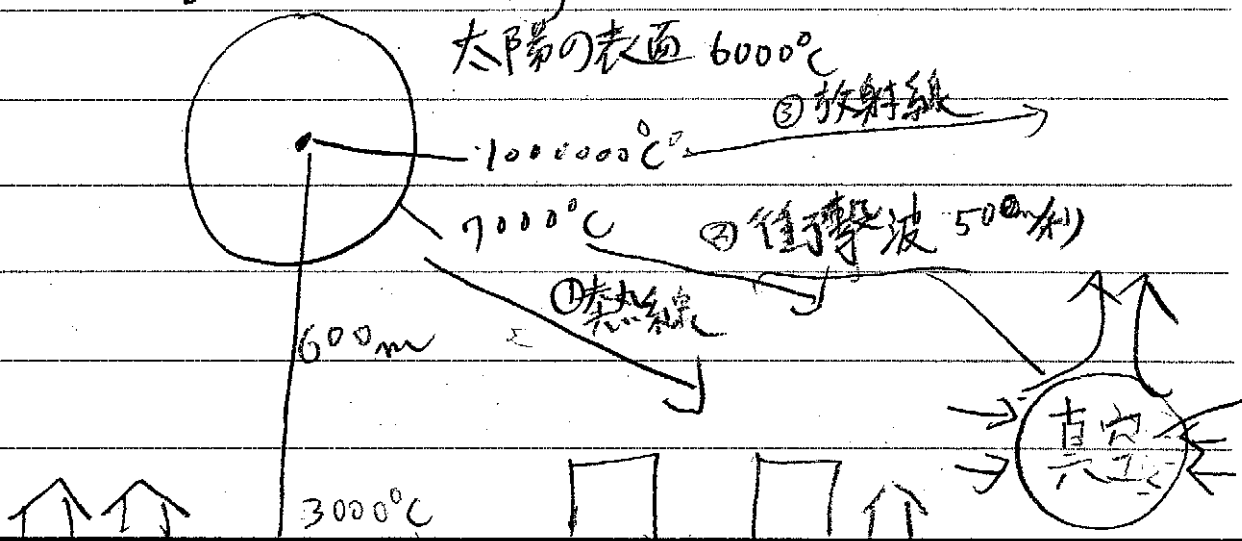 太陽の表面 6000°C
③放射線
1000000°C
7000°C
②衝撃波 500m/秒
①熱線
600m
真空
3000°C